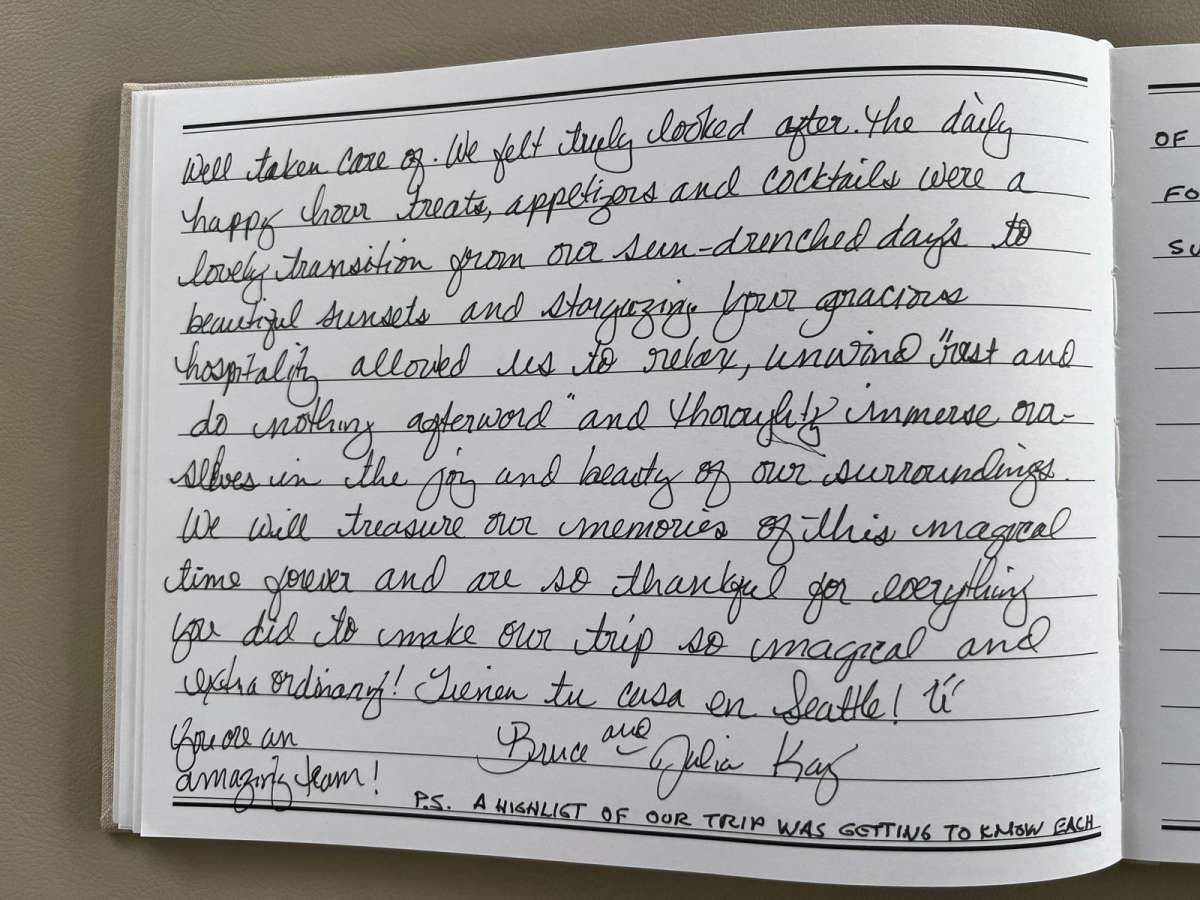 well taken care of. We felt truly looked after. The daily
happy hour treats, appetizers and cocktails were a
lovely transition from our sun-drenched days to
beautiful sunsets and stargazing. Your gracious
hospitality allowed us to relax, unwind "rest and
do nothing afterword" and thoroughly immerse our-
selves in the joy and beauty of our surroundings.
We will treasure our memories of this magical
time forever and are so thankful for everything
you did to make our trip so magical and
extra ordinary! Tienen tu casa en Seattle!
You are an
amazing team!
Bruce and Julia
P.S. A HIGHLIGT OF OUR TRIP WAS GETTING TO KNOW EACH
OF
FO
SU